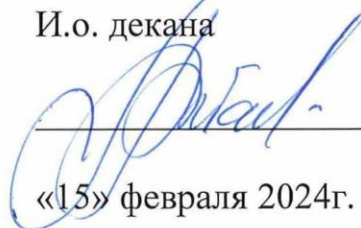 И.о. декана
«15» февраля 2024г.